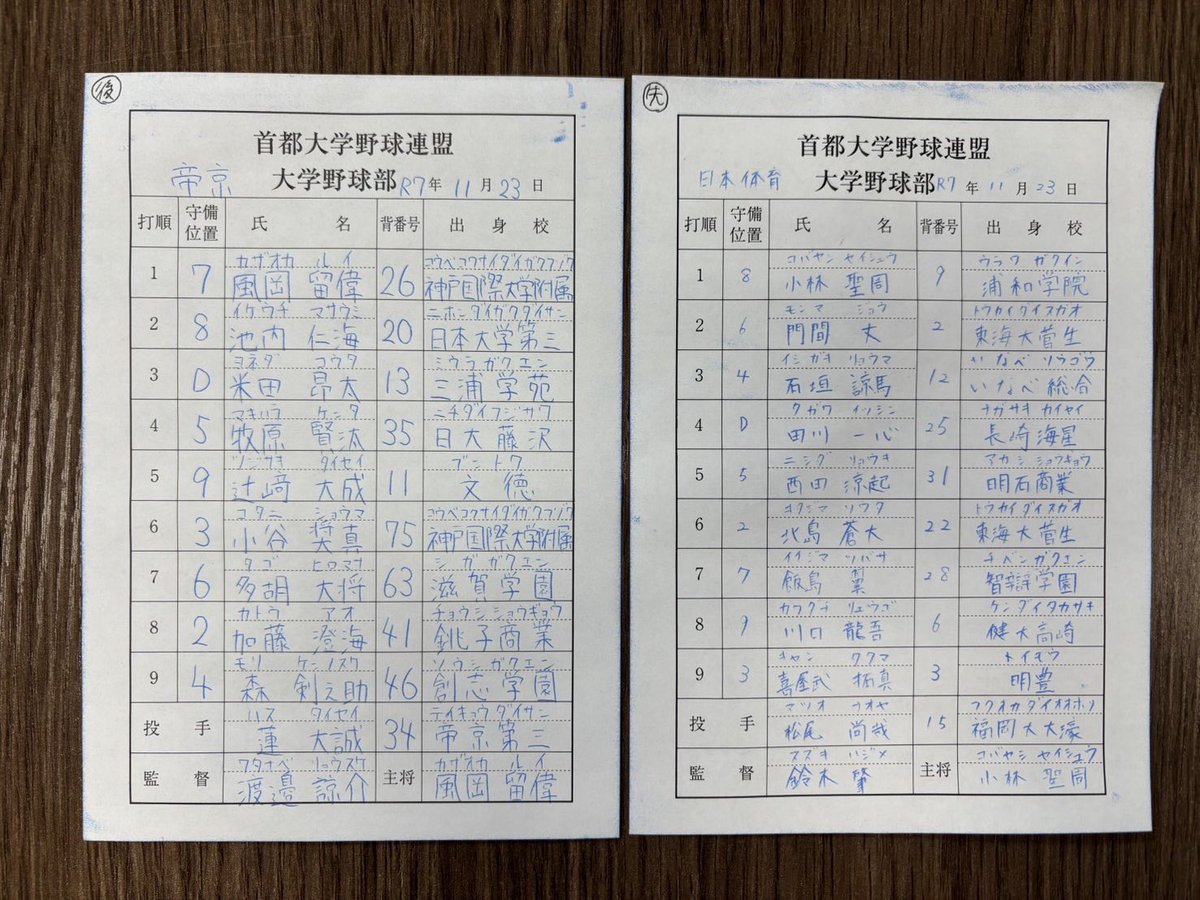 後
首都大学野球連盟
帝京 大学野球部 R7年 11月 23日
打順 守備位置 氏名 背番号 出身校
カザオカ ルイ コウベコクサイダイガクフゾク
1 7 風岡 留偉 26 神戸国際大学附属
イケウチ マサウミ ニホンダイガクダイサン
2 8 池内 仁海 20 日本大学第三
ヨネダ コウタ ミウラガクエン
3 D 米田 昂太 13 三浦学苑
マキハラ ケンタ ニチダイフジサワ
4 5 牧原 賢汰 35 日大藤沢
ツジサキ タイセイ ブントク
5 9 辻﨑 大成 11 文徳
コタニ ショウマ コウベコクサイダイガクフゾク
6 3 小谷 奨真 75 神戸国際大学附属
タゴ ヒロマサ シガガクエン
7 6 多胡 大将 63 滋賀学園
カトウ アオ チョウシショウギョウ
8 2 加藤 澄海 41 銚子商業
モリ ケンノスケ ソウシガクエン
9 4 森 剣之助 46 創志学園
ハス タイセイ テイキョウダイサン
投手 蓮 大誠 34 帝京第三
ワタナベ リョウスケ カザオカ ルイ
監督 渡邉 諒介 主将 風岡 留偉
先
首都大学野球連盟
日本体育 大学野球部 R7年 11月 23日
打順 守備位置 氏名 背番号 出身校
コバヤシ セイシュウ ウラワガクイン
1 8 小林 聖周 9 浦和学院
モンマ ジョウ トウカイダイスガオ
2 6 門間 丈 2 東海大菅生
イシガキ リョウマ いなべソウゴウ
3 4 石垣 諒馬 12 いなべ総合
タガワ イッシン ナガサキカイセイ
4 D 田川 一心 25 長崎海星
ニシダ リョウキ アカシショウギョウ
5 5 西田 涼起 31 明石商業
キタジマ ソウタ トウカイダイスガオ
6 2 北島 蒼大 22 東海大菅生
イイジマ ツバサ チベンガクエン
7 7 飯島 翼 28 智辯学園
カワグチ リュウゴ ケンダイタカサキ
8 9 川口 龍吾 6 健大高崎
キャン タクマ メイホウ
9 3 喜屋武 拓真 3 明豊
マツオ ナオヤ フクオカダイオオホリ
投手 松尾 尚哉 15 福岡大大濠
スズキ ハジメ コバヤシ セイシュウ
監督 鈴木 肇 主将 小林 聖周